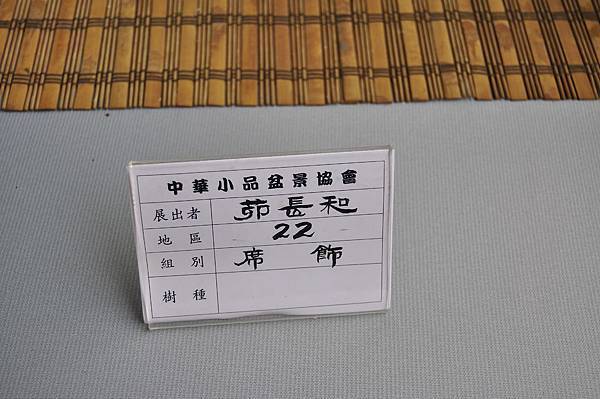 中華小品盆景協會
展出者 茆長和
地區 22
組別 席飾
樹種